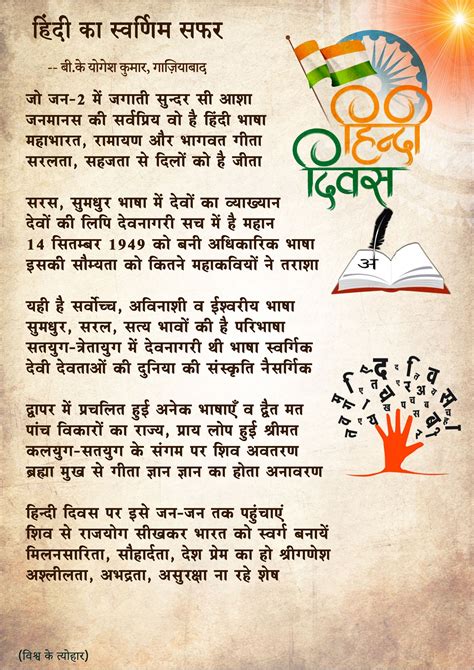 हिंदी का स्वर्णिम सफर
-- बी.के योगेश कुमार, गाज़ियाबाद
जो जन-2 में जगाती सुन्दर सी आशा
जनमानस की सर्वप्रिय वो है हिंदी भाषा
महाभारत, रामायण और भागवत गीता
सरलता, सहजता से दिलों को है जीता
हिन्दी
दिवस
सरस, सुमधुर भाषा में देवों का व्याख्यान
देवों की लिपि देवनागरी सच में है महान
14 सितम्बर 1949 को बनी अधिकारिक भाषा
इसकी सौम्यता को कितने महाकवियों ने तराशा
अ
यही है सर्वोच्च, अविनाशी व ईश्वरीय भाषा
सुमधुर, सरल, सत्य भावों की है परिभाषा
सतयुग-त्रेतायुग में देवनागरी थी भाषा स्वर्गिक
देवी देवताओं की दुनिया की संस्कृति नैसर्गिक
द्वापर में प्रचलित हुई अनेक भाषाएँ व द्वैत मत
पांच विकारों का राज्य, प्राय लोप हुई श्रीमत
कलयुग-सतयुग के संगम पर शिव अवतरण
ब्रह्मा मुख से गीता ज्ञान ज्ञान का होता अनावरण
हिन्दी दिवस पर इसे जन-जन तक पहुंचाएं
शिव से राजयोग सीखकर भारत को स्वर्ग बनायें
मिलनसारिता, सौहार्दता, देश प्रेम का हो श्रीगणेश
अश्लीलता, अभद्रता, असुरक्षा ना रहे शेष
(विश्व के त्योहार)